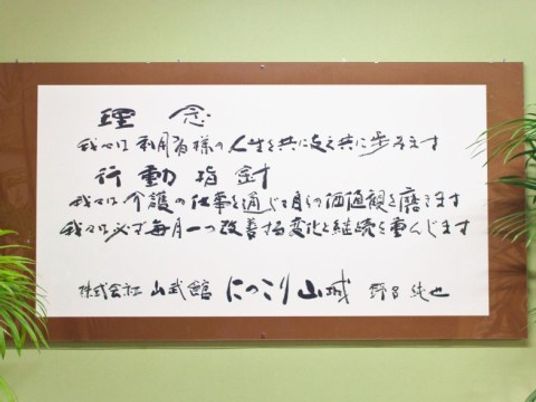 理念
我々は利用者様の人生を共に支え共に歩みます
行動指針
我々は介護の仕事を通じて自らの価値観を磨きます
我々は必ず毎月一つ改善する変化と継続を重んじます
株式会社 山武館 にっこり山城 純也